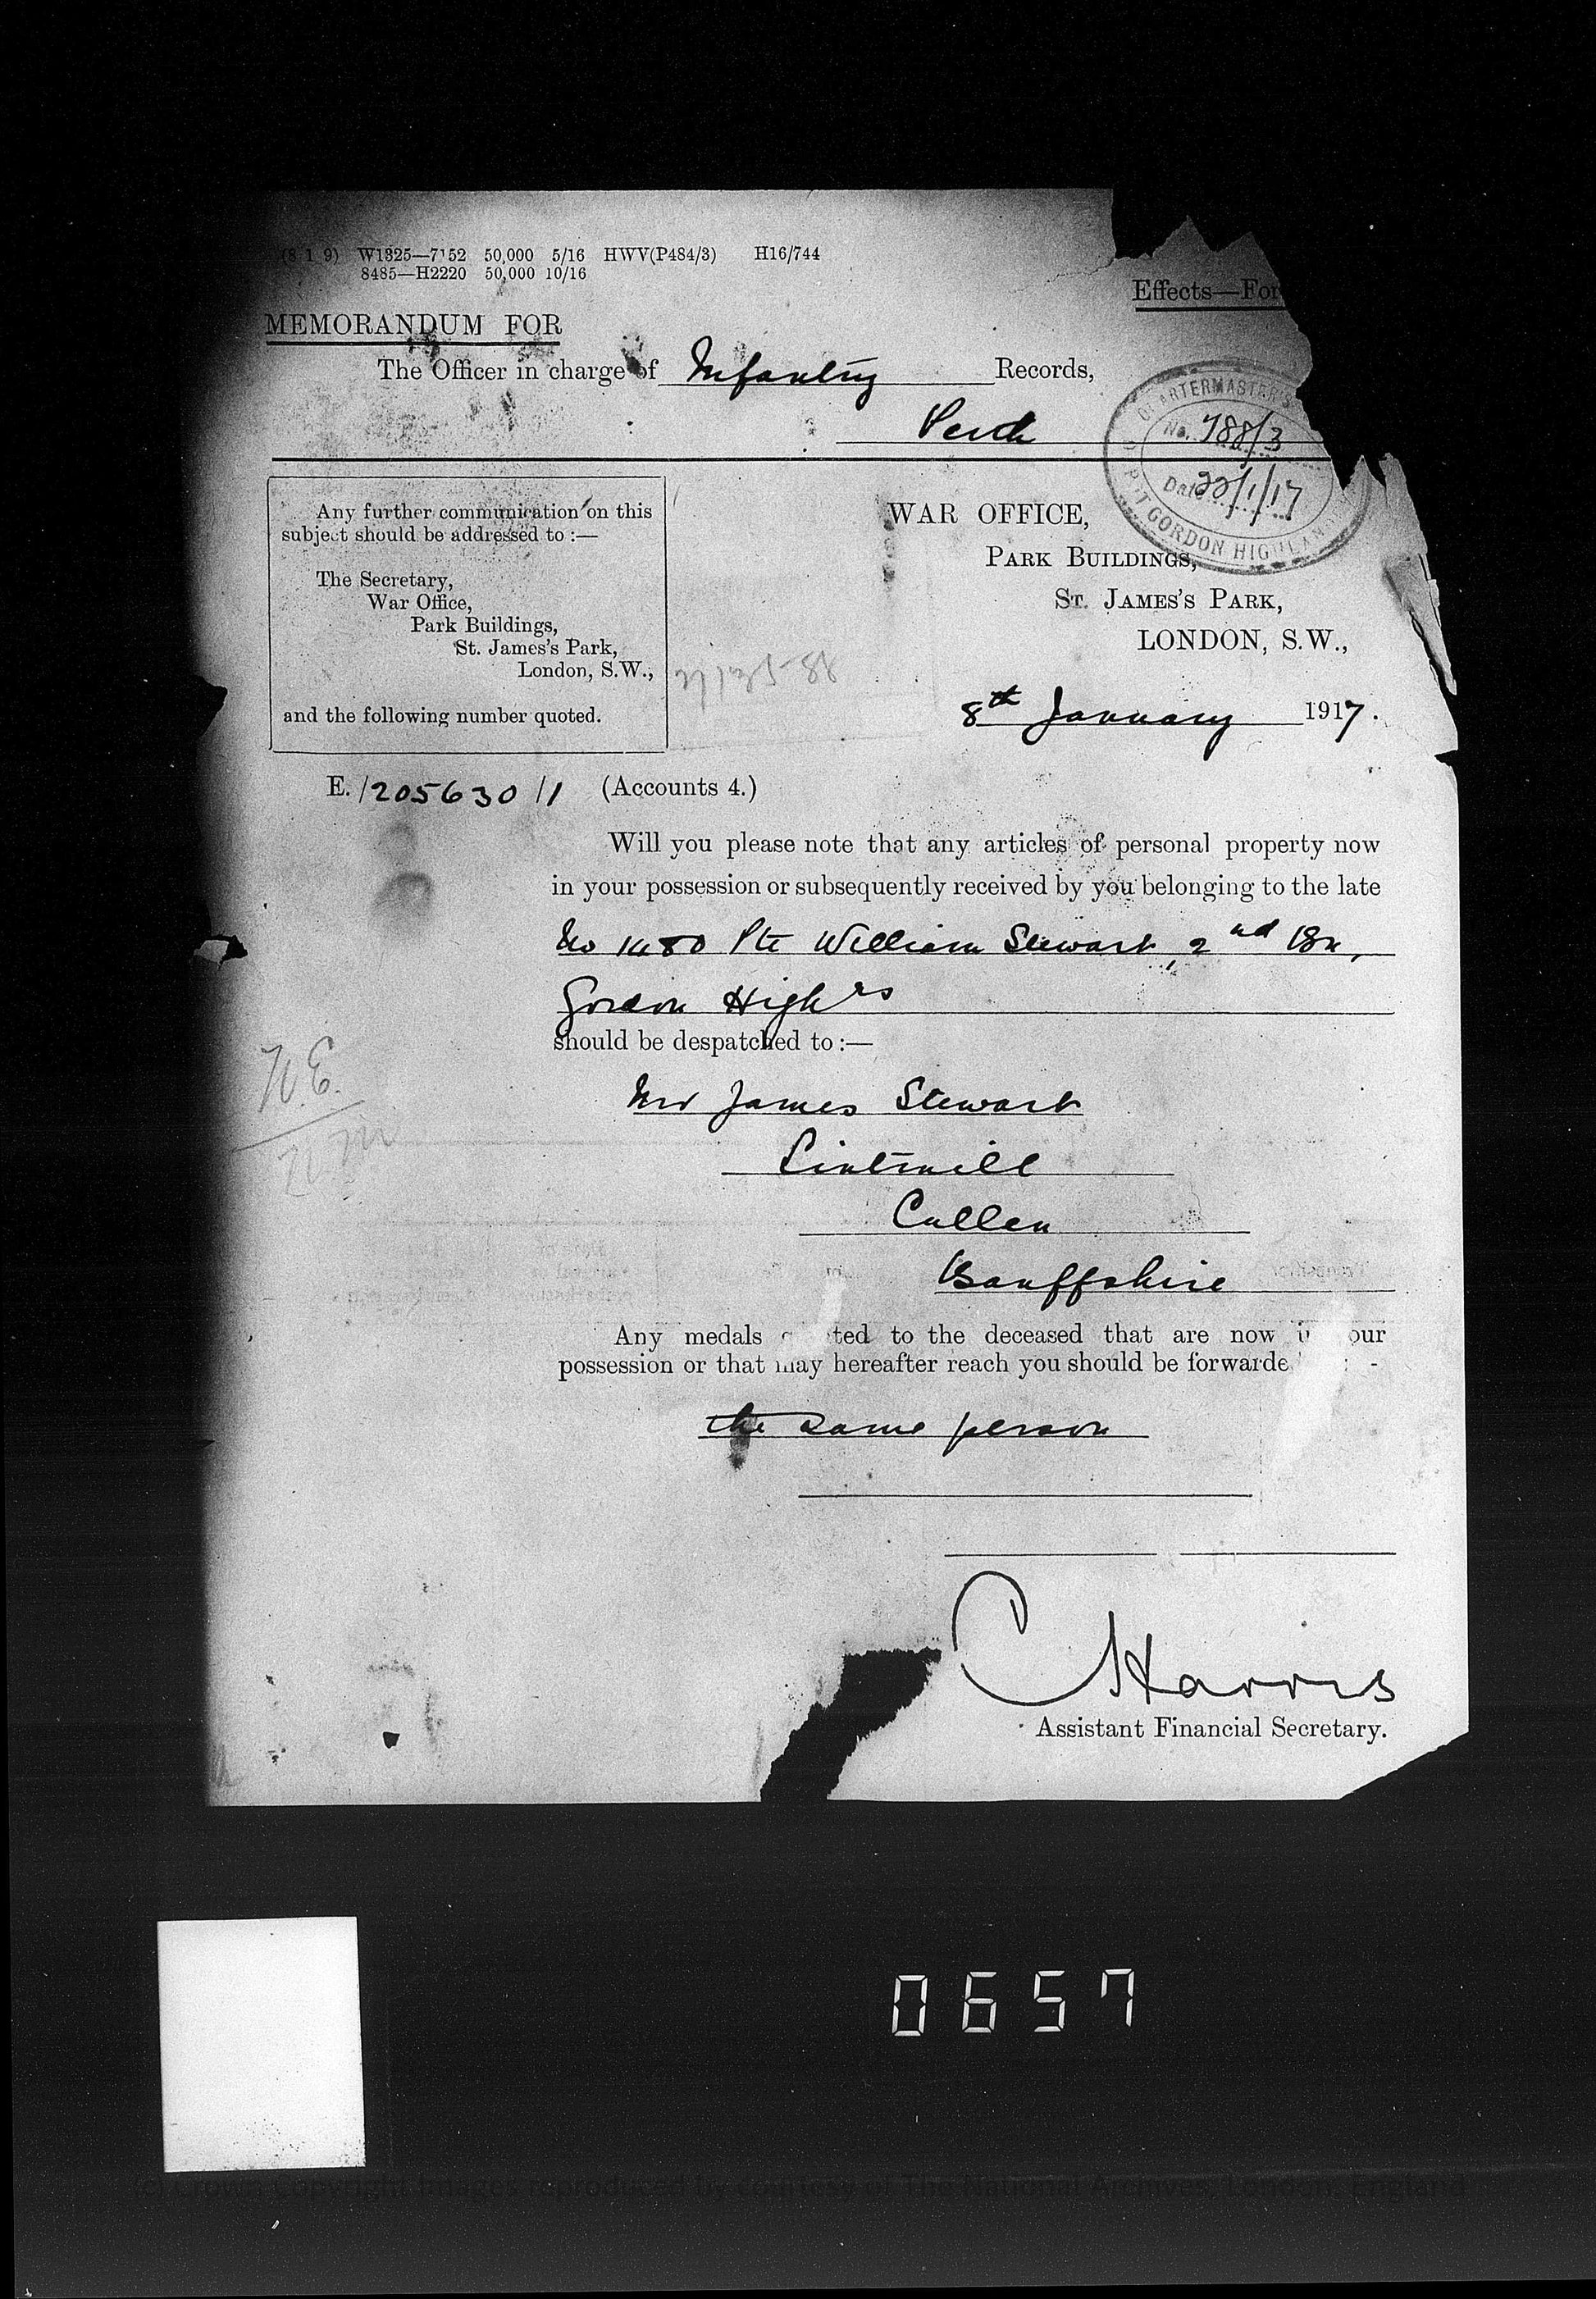 (8 1 9) W1825—7152 50,000 5/16 HWV(P484/3) H16/744
8485—H2220 50,000 10/16
Effects—For
MEMORANDUM FOR
The Officer in charge of Infantry Records,
Perth
QUARTERMASTER'S
No. 788/3
Date 22/1/17
DEPÔT GORDON HIGHLAN
Any further communication on this
subject should be addressed to :—
The Secretary,
War Office,
Park Buildings,
St. James's Park,
London, S.W.,
and the following number quoted.
WAR OFFICE,
PARK BUILDINGS,
ST. JAMES'S PARK,
LONDON, S.W.,
8th January 1917.
E./205630/1 (Accounts 4.)
Will you please note that any articles of personal property now
in your possession or subsequently received by you belonging to the late
No 1480 Pte William Stewart, 2nd Bn,
Gordon Highrs
should be despatched to :—
James Stewart
Lintmill
Cullen
Banffshire
N.E.
Any medals ted to the deceased that are now our
possession or that may hereafter reach you should be forwarde
the same person
C Harris
Assistant Financial Secretary.
0657
(c) Crown Copyright Images reproduced by courtesy of The National Archives, London, England